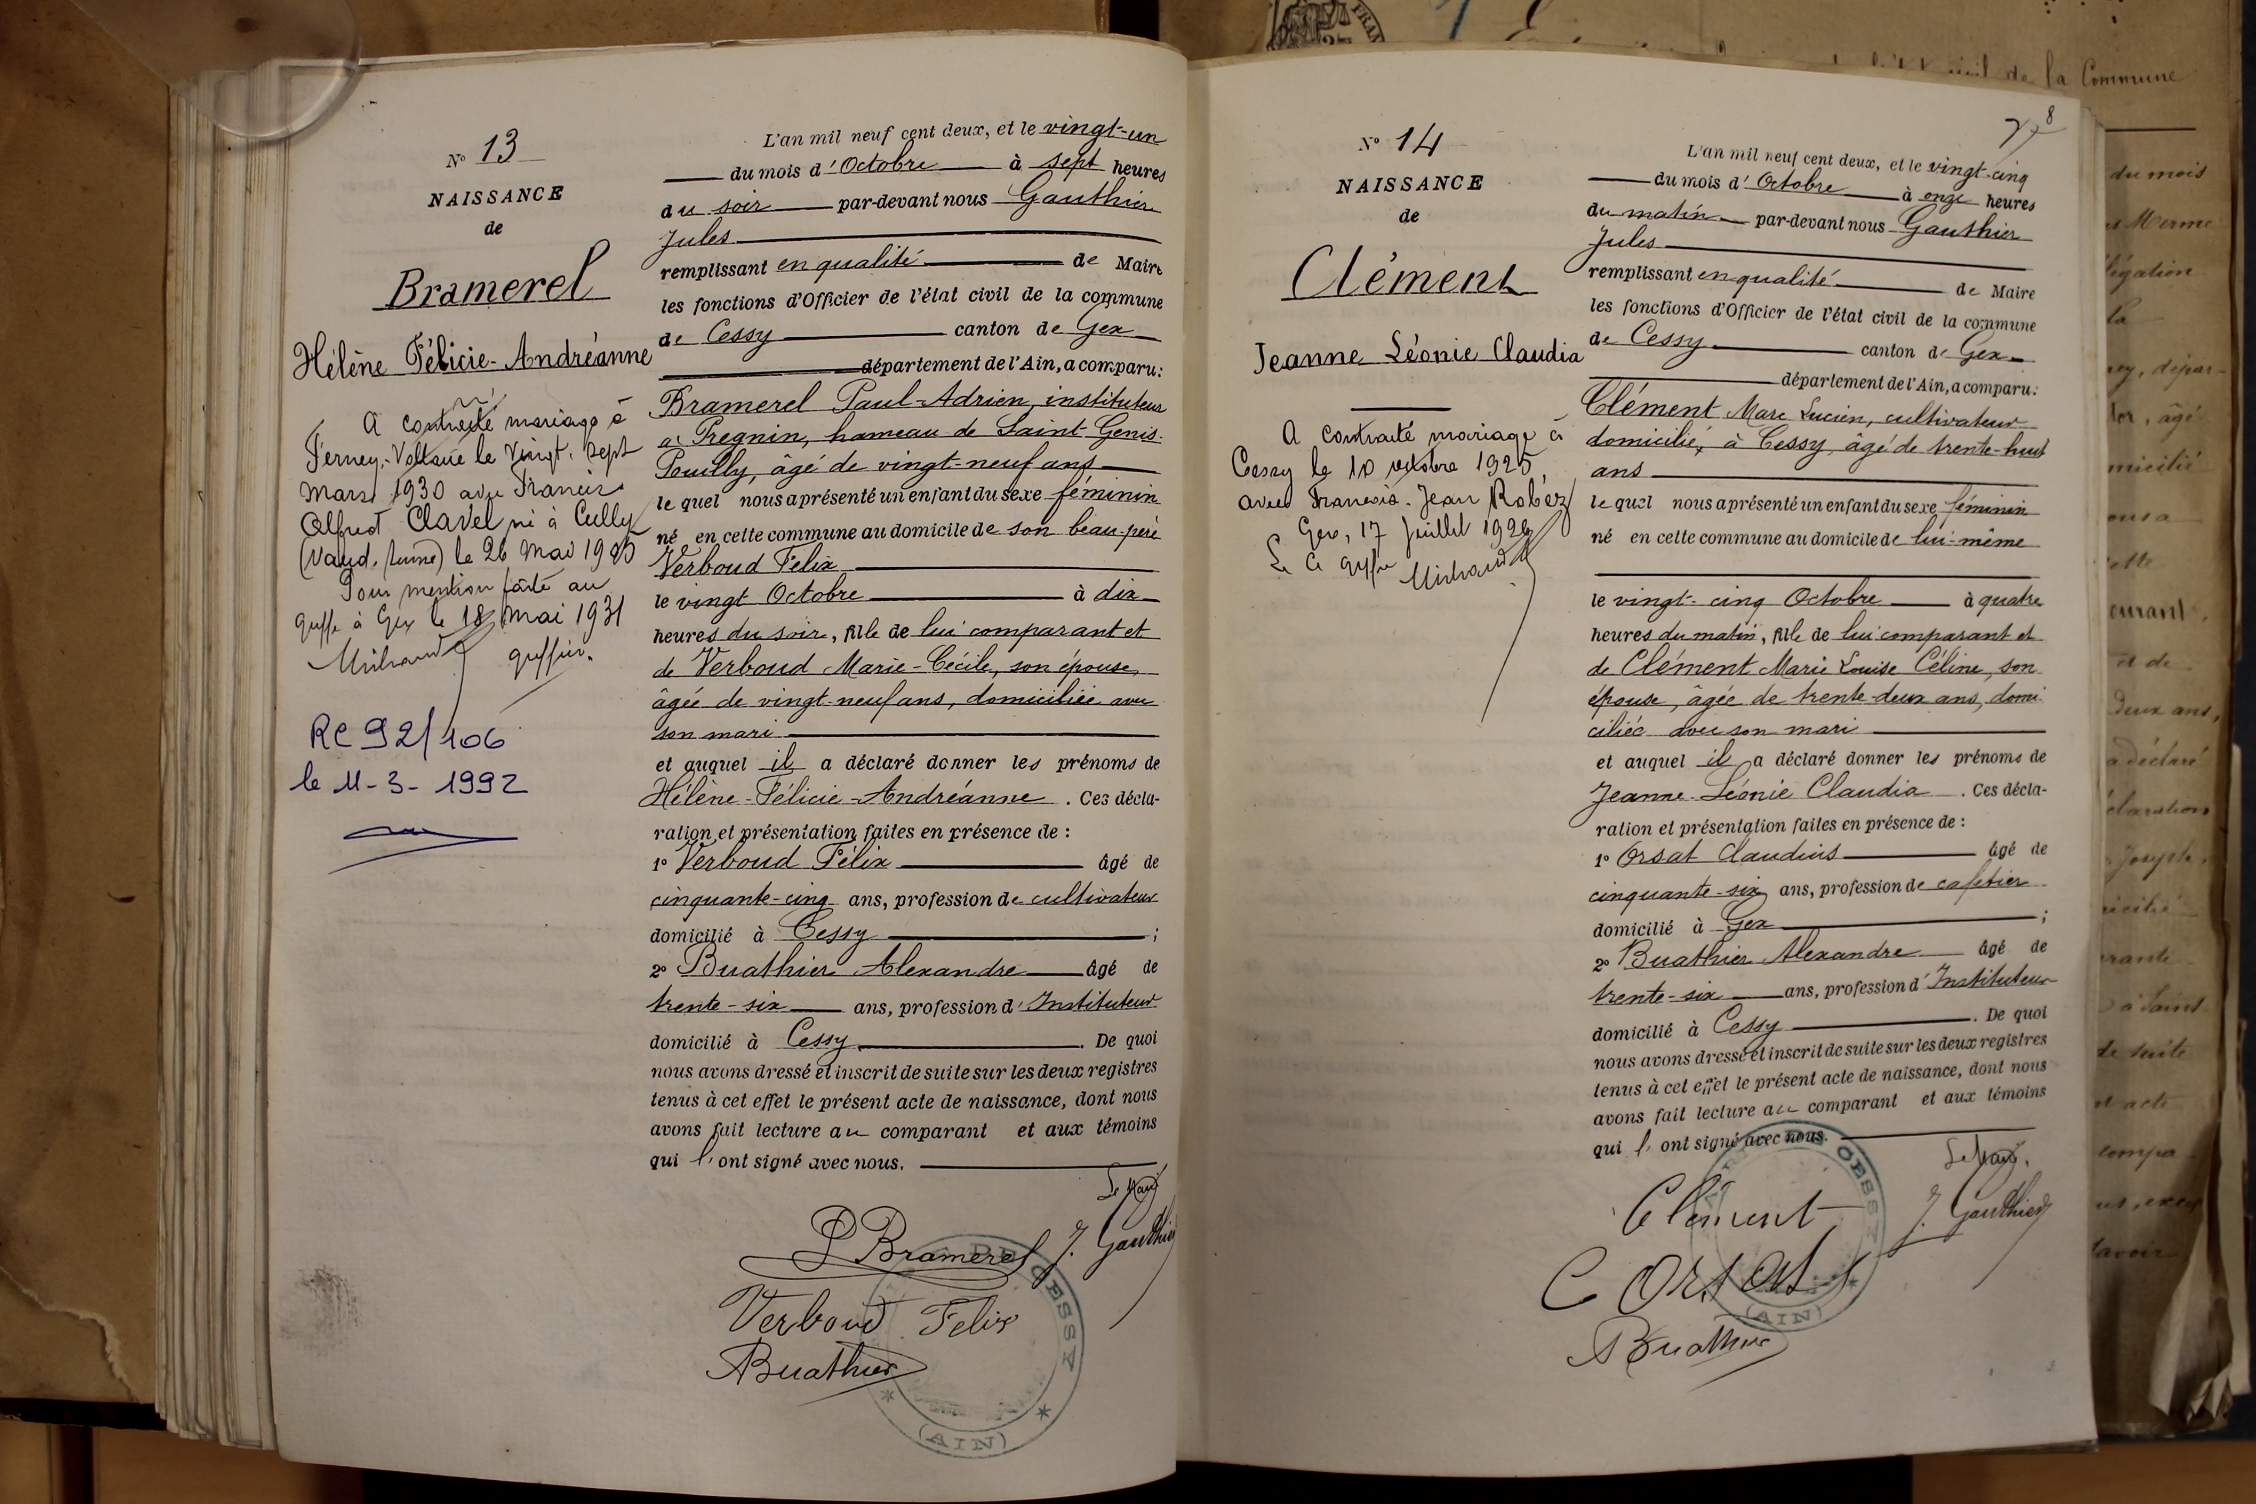 N° 13
NAISSANCE
de
Bramerel
Hélène Félicie-Andréanne
A contracté mariage à
Ferney-Voltaire le Vingt-sept
mars 1930 avec Francis
Alfred Clavel né à Cully
(Vaud, Suisse) le 26 Mai 1905
Pour mention faite au
greffe à Gex le 18 Mai 1931
greffier.
RC 92/106
le 11-3-1992
L'an mil neuf cent deux, et le vingt-un
du mois d'Octobre à sept heures
du soir par-devant nous Gauthier
Jules
remplissant en qualité de Maire
les fonctions d'Officier de l'état civil de la commune
de Cessy canton de Gex
département de l'Ain, a comparu:
Bramerel Paul-Adrien, instituteur
à Pregnin, hameau de Saint-Genis-
Pouilly, âgé de vingt-neuf ans
le quel nous a présenté un enfant du sexe féminin
né en cette commune au domicile de son beau-père
Verboud Félix
le vingt Octobre à dix
heures du soir, fille de lui comparant et
de Verboud Marie-Cécile, son épouse,
âgée de vingt-neuf ans, domiciliée avec
son mari
et auquel il a déclaré donner les prénoms de
Hélène-Félicie-Andréanne. Ces décla-
ration et présentation faites en présence de :
1° Verboud Félix âgé de
cinquante-cinq ans, profession de cultivateur
domicilié à Cessy ;
2° Buathier Alexandre âgé de
trente-six ans, profession d'Instituteur
domicilié à Cessy. De quoi
nous avons dressé et inscrit de suite sur les deux registres
tenus à cet effet le présent acte de naissance, dont nous
avons fait lecture au comparant et aux témoins
qui l'ont signé avec nous.
Le Maire
P Bramerel J. Gauthier
Verboud Felix
A Buathier
DE CESSY
(AIN)
8
N° 14
NAISSANCE
de
Clément
Jeanne Léonie Claudia
A contracté mariage à
Cessy le 10 octobre 1925
avec François-Jean Robez
Gex, 17 Juillet 1926
L'an mil neuf cent deux, et le vingt-cinq
du mois d'Octobre à onze heures
du matin par-devant nous Gauthier
Jules
remplissant en qualité de Maire
les fonctions d'Officier de l'état civil de la commune
de Cessy canton de Gex
département de l'Ain, a comparu:
Clément Marc Lucien, cultivateur
domicilié, à Cessy, âgé de trente-huit
ans
le quel nous a présenté un enfant du sexe féminin
né en cette commune au domicile de lui-même
le vingt-cinq Octobre à quatre
heures du matin, fille de lui comparant et
de Clément Marie Louise Céline, son
épouse, âgée de trente-deux ans, domi-
ciliée avec son mari
et auquel il a déclaré donner les prénoms de
Jeanne-Léonie Claudia. Ces décla-
ration et présentation faites en présence de :
1° Orsat Claudius âgé de
cinquante-six ans, profession de cafetier
domicilié à Gex ;
2° Buathier Alexandre âgé de
trente-six ans, profession d'Instituteur
domicilié à Cessy. De quoi
nous avons dressé et inscrit de suite sur les deux registres
tenus à cet effet le présent acte de naissance, dont nous
avons fait lecture au comparant et aux témoins
qui l'ont signé avec nous.
Le Maire.
Clément J. Gauthier
C Orsat
A Buathier
DE CESSY
(AIN)
de la Commune
du mois
la